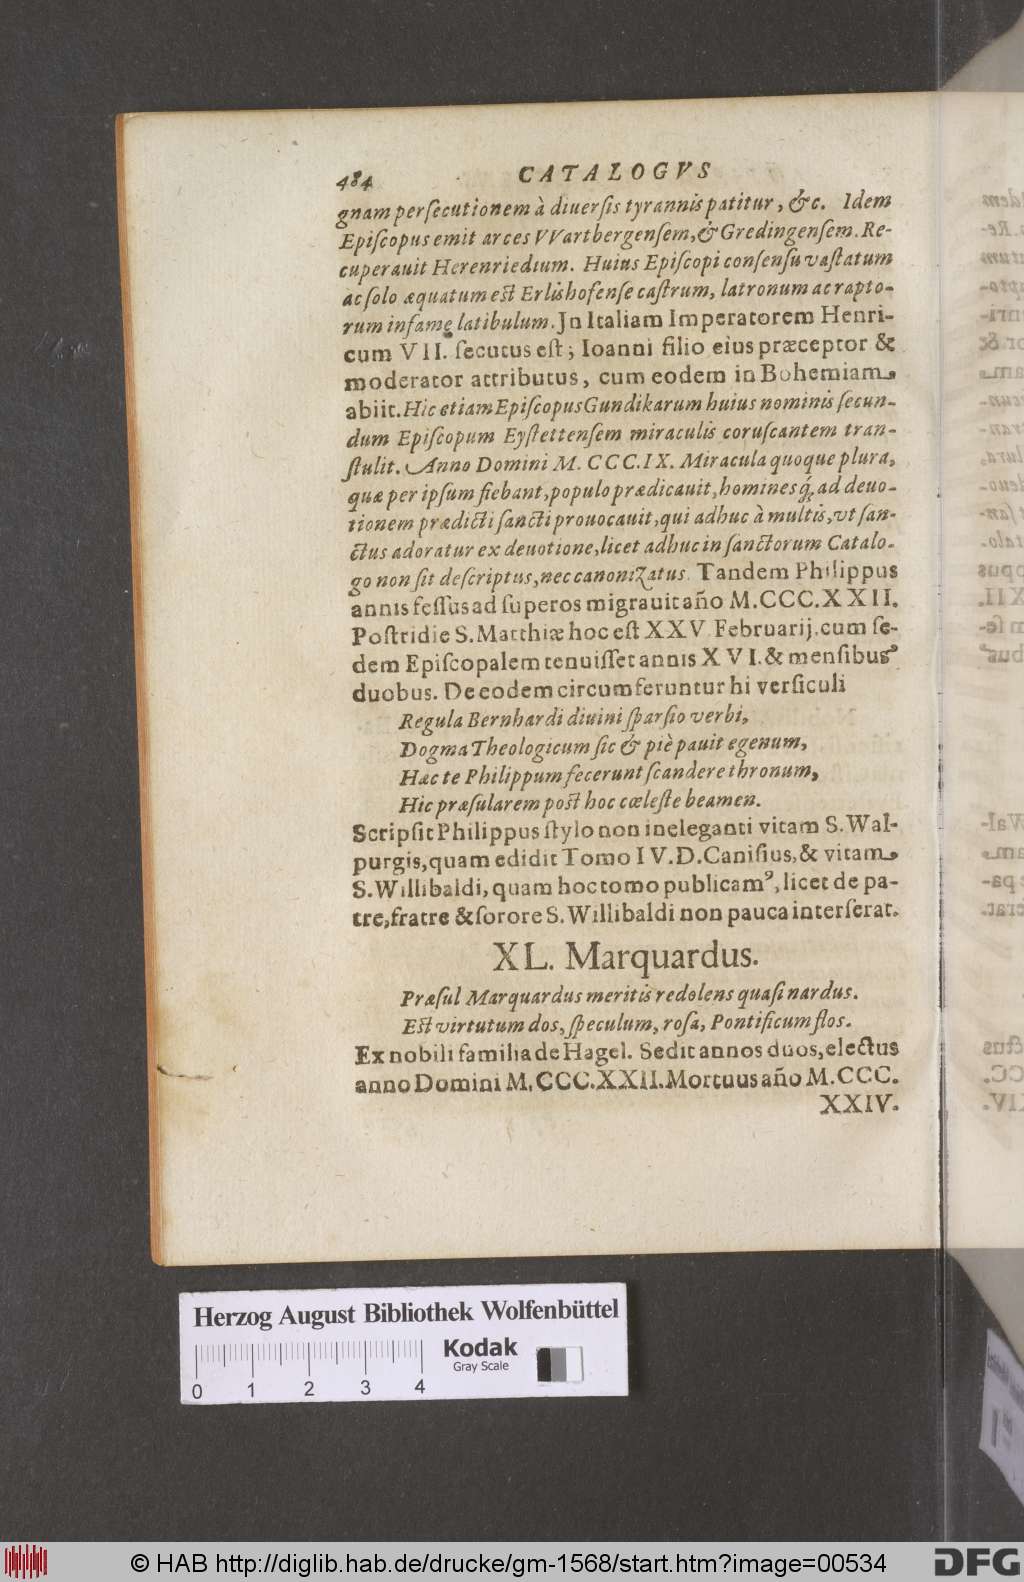 484 CATALOGVS
gnam perſecutionem à diuerſis tyrannis patitur, &c. Idem
Epiſcopus emit arces VVartbergenſem, & Gredingenſem. Re-
cuperauit Herenriedium. Huius Epiſcopi conſenſu vaſtatum
ac ſolo æquatum eſt Erlishofenſe caſtrum, latronum ac rapto-
rum infame latibulum. Jn Italiam Imperatorem Henri-
cum VII. ſecutus eſt; Ioanni filio eius præceptor &
moderator attributus, cum eodem in Bohemiam
abiit. Hic etiam Epiſcopus Gundikarum huius nominis ſecun-
dum Epiſcopum Eyſtettenſem miraculis coruſcantem tran-
ſtulit. Anno Domini M. CCC. IX. Miracula quoque plura,
quæ per ipſum fiebant, populo prædicauit, homines q́; ad deuo-
tionem prædicti ſancti prouocauit, qui adhuc à multis, vt ſan-
ctus adoratur ex deuotione, licet adhuc in ſanctorum Catalo-
go non ſit deſcriptus, nec canonizatus. Tandem Philippus
annis feſſus ad ſuperos migrauit año M.CCC.XXII.
Poſtridie S. Matthiæ hoc eſt XXV. Februarij. cum ſe-
dem Epiſcopalem tenuiſſet annis XVI. & menſibus
duobus. De eodem circumferuntur hi verſiculi
Regula Bernhardi diuini ſparſio verbi,
Dogma Theologicum ſic & piè pauit egenum,
Hac te Philippum fecerunt ſcandere thronum,
Hic præſularem poſt hoc cœleſte beamen.
Scripſit Philippus ſtylo non ineleganti vitam S. Wal-
purgis, quam edidit Tomo IV. D. Caniſius, & vitam
S. Willibaldi, quam hoc tomo publicamꝰ, licet de pa-
tre, fratre & ſorore S. Willibaldi non pauca interſerat.
XL. Marquardus.
Præſul Marquardus meritis redolens quaſi nardus.
Eſt virtutum dos, ſpeculum, roſa, Pontificum flos.
Ex nobili familia de Hagel. Sedit annos duos, electus
anno Domini M. CCC. XXII. Mortuus año M. CCC.
XXIV.
Herzog August Bibliothek Wolfenbüttel
Kodak
Gray Scale
0 1 2 3 4
© HAB http://diglib.hab.de/drucke/gm-1568/start.htm?image=00534
DFG